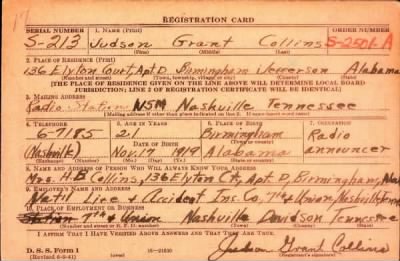 REGISTRATION CARD
SERIAL NUMBER 1. NAME (Print) ORDER NUMBER
S-213 Judson Grant Collins S-2501-A
(First) (Middle) (Last)
2. PLACE OF RESIDENCE (Print)
136 Elyton Court, Apt. D. Birmingham Jefferson Alabama
(Number and street) (Town, township, village, or city) (County) (State)
[THE PLACE OF RESIDENCE GIVEN ON THE LINE ABOVE WILL DETERMINE LOCAL BOARD
JURISDICTION; LINE 2 OF REGISTRATION CERTIFICATE WILL BE IDENTICAL]
3. MAILING ADDRESS
Radio Station WSM Nashville Tennessee
4. TELEPHONE 5. AGE IN YEARS 6. PLACE OF BIRTH 7. OCCUPATION
6-7185 21 Birmingham Radio
DATE OF BIRTH
(Nashville) Nov. 17 1919 Alabama announcer
8. NAME AND ADDRESS OF PERSON WHO WILL ALWAYS KNOW YOUR ADDRESS
Mrs. A. D. Collins, 136 Elyton Ct., Apt D, Birmingham, Ala
9. EMPLOYER'S NAME AND ADDRESS
Nat'l Life & Accident Ins. Co., 7th & Union, Nashville, Tenn
10. PLACE OF EMPLOYMENT OR BUSINESS
Station 7th & Union Nashville Davidson Tennessee
(Number and street or R. F. D. number) (Town) (County) (State)
I AFFIRM THAT I HAVE VERIFIED ABOVE ANSWERS AND THAT THEY ARE TRUE.
D. S. S. Form 1
(Revised 6-9-41) (over) 16-21630 Judson Grant Collins